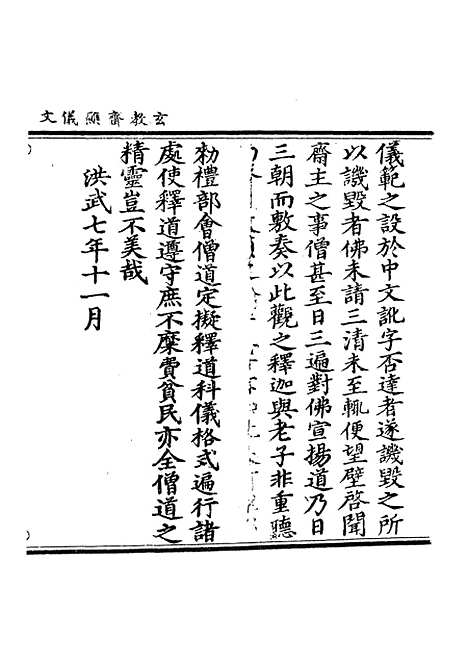 玄教齋醮儀文
儀範之設於中文訛字否達者遂譏毀之所
以譏毀者佛未請三清未至輒便望壁啓聞
齋主之事僧甚至日三遍對佛宣揚道乃日
三朝而敷奏以此觀之釋迦與老子非重聽
勑禮部會僧道定擬釋道科儀格式遍行諸
處使釋道遵守庶不糜費貧民亦全僧道之
精靈豈不美哉
洪武七年十一月